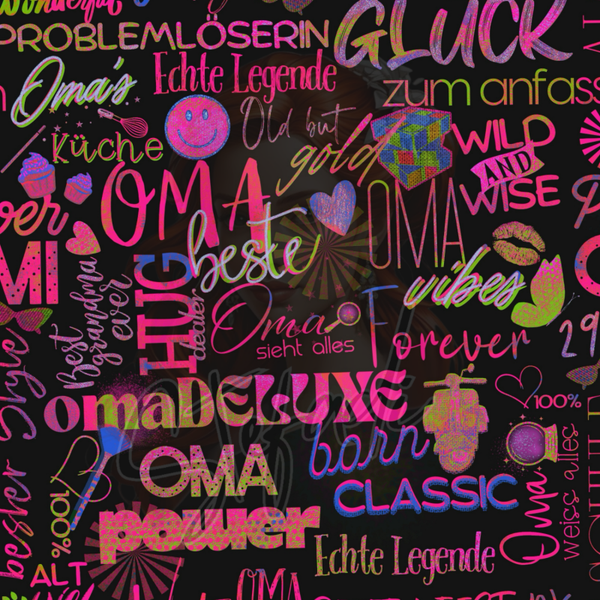 Wonderful
PROBLEMLÖSERIN
GLÜCK
zum anfass
Echte Legende
Oma's
Küche
Old but
gold
WILD
AND
WISE
OMA
beste
OMA
vibes
MI
Best
grandma
ever
HUG
dealer
Oma
sieht alles
Forever
29
Style
omaDELUXE
100%
born
CLASSIC
OMA
power
100%
bester
Oma
weiss alles
Echte Legende
ALT
OMA